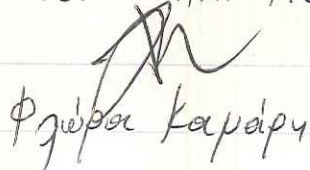 Φλώρα Καμάρη